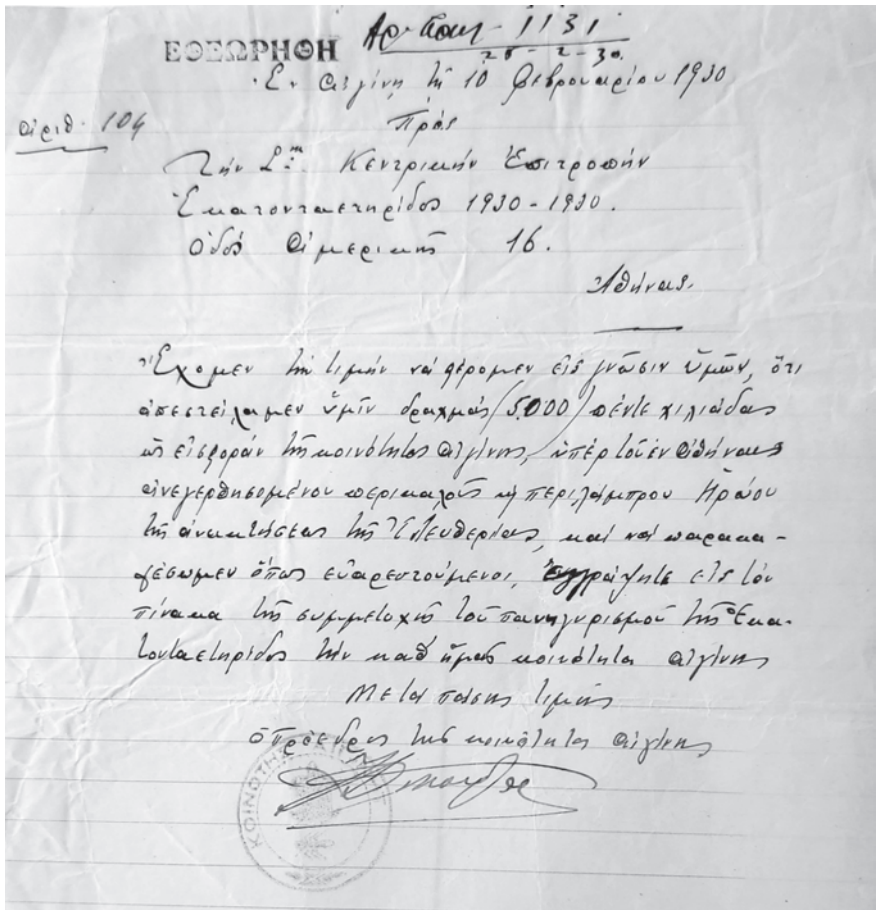 ΕΘΕΩΡΗΘΗ Αρ. Πρωτ. 1131
25-2-30.
Ἐν Αἰγίνῃ τῇ 10 Φεβρουαρίου 1930
ἀριθ. 104
Πρὸς
Τὴν Σ. Κεντρικὴν Ἐπιτροπὴν
Ἑκατονταετηρίδος 1930-1930.
Ὁδὸς Ἀμερικῆς 16.
Ἀθήνας.
Ἔχομεν τὴν τιμὴν νὰ φέρομεν εἰς γνῶσιν ὑμῶν, ὅτι
ἀπεστείλαμεν ὑμῖν δραχμὰς (5.000) πέντε χιλιάδας
ὡς εἰσφορὰν τῆς κοινότητος Αἰγίνης, ὑπὲρ τοῦ ἐν Ἀθήναις
ἀνεγερθησομένου περικαλοῦς κ περιλάμπρου Ἡρώου
τῆς ἀνακτήσεως τῆς Ἐλευθερίας, καὶ νὰ παρακα-
λέσωμεν ὅπως εὐαρεστούμενοι, ἐγγράψητε εἰς τὸν
πίνακα τῆς συμμετοχῆς τοῦ πανηγυρισμοῦ τῆς Ἑκα-
τονταετηρίδος τὴν καθ ἡμᾶς κοινότητα Αἰγίνης
Μετὰ πάσης τιμῆς
ὁ πρόεδρος τῆς κοινότητος Αἰγίνης
ΚΟΙΝΟΤΗΣ